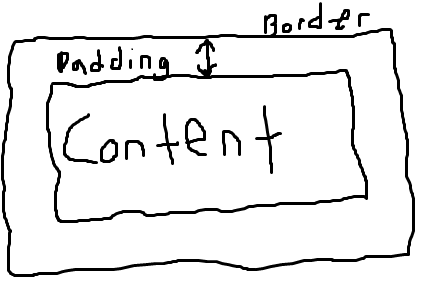 Border
Padding
Content